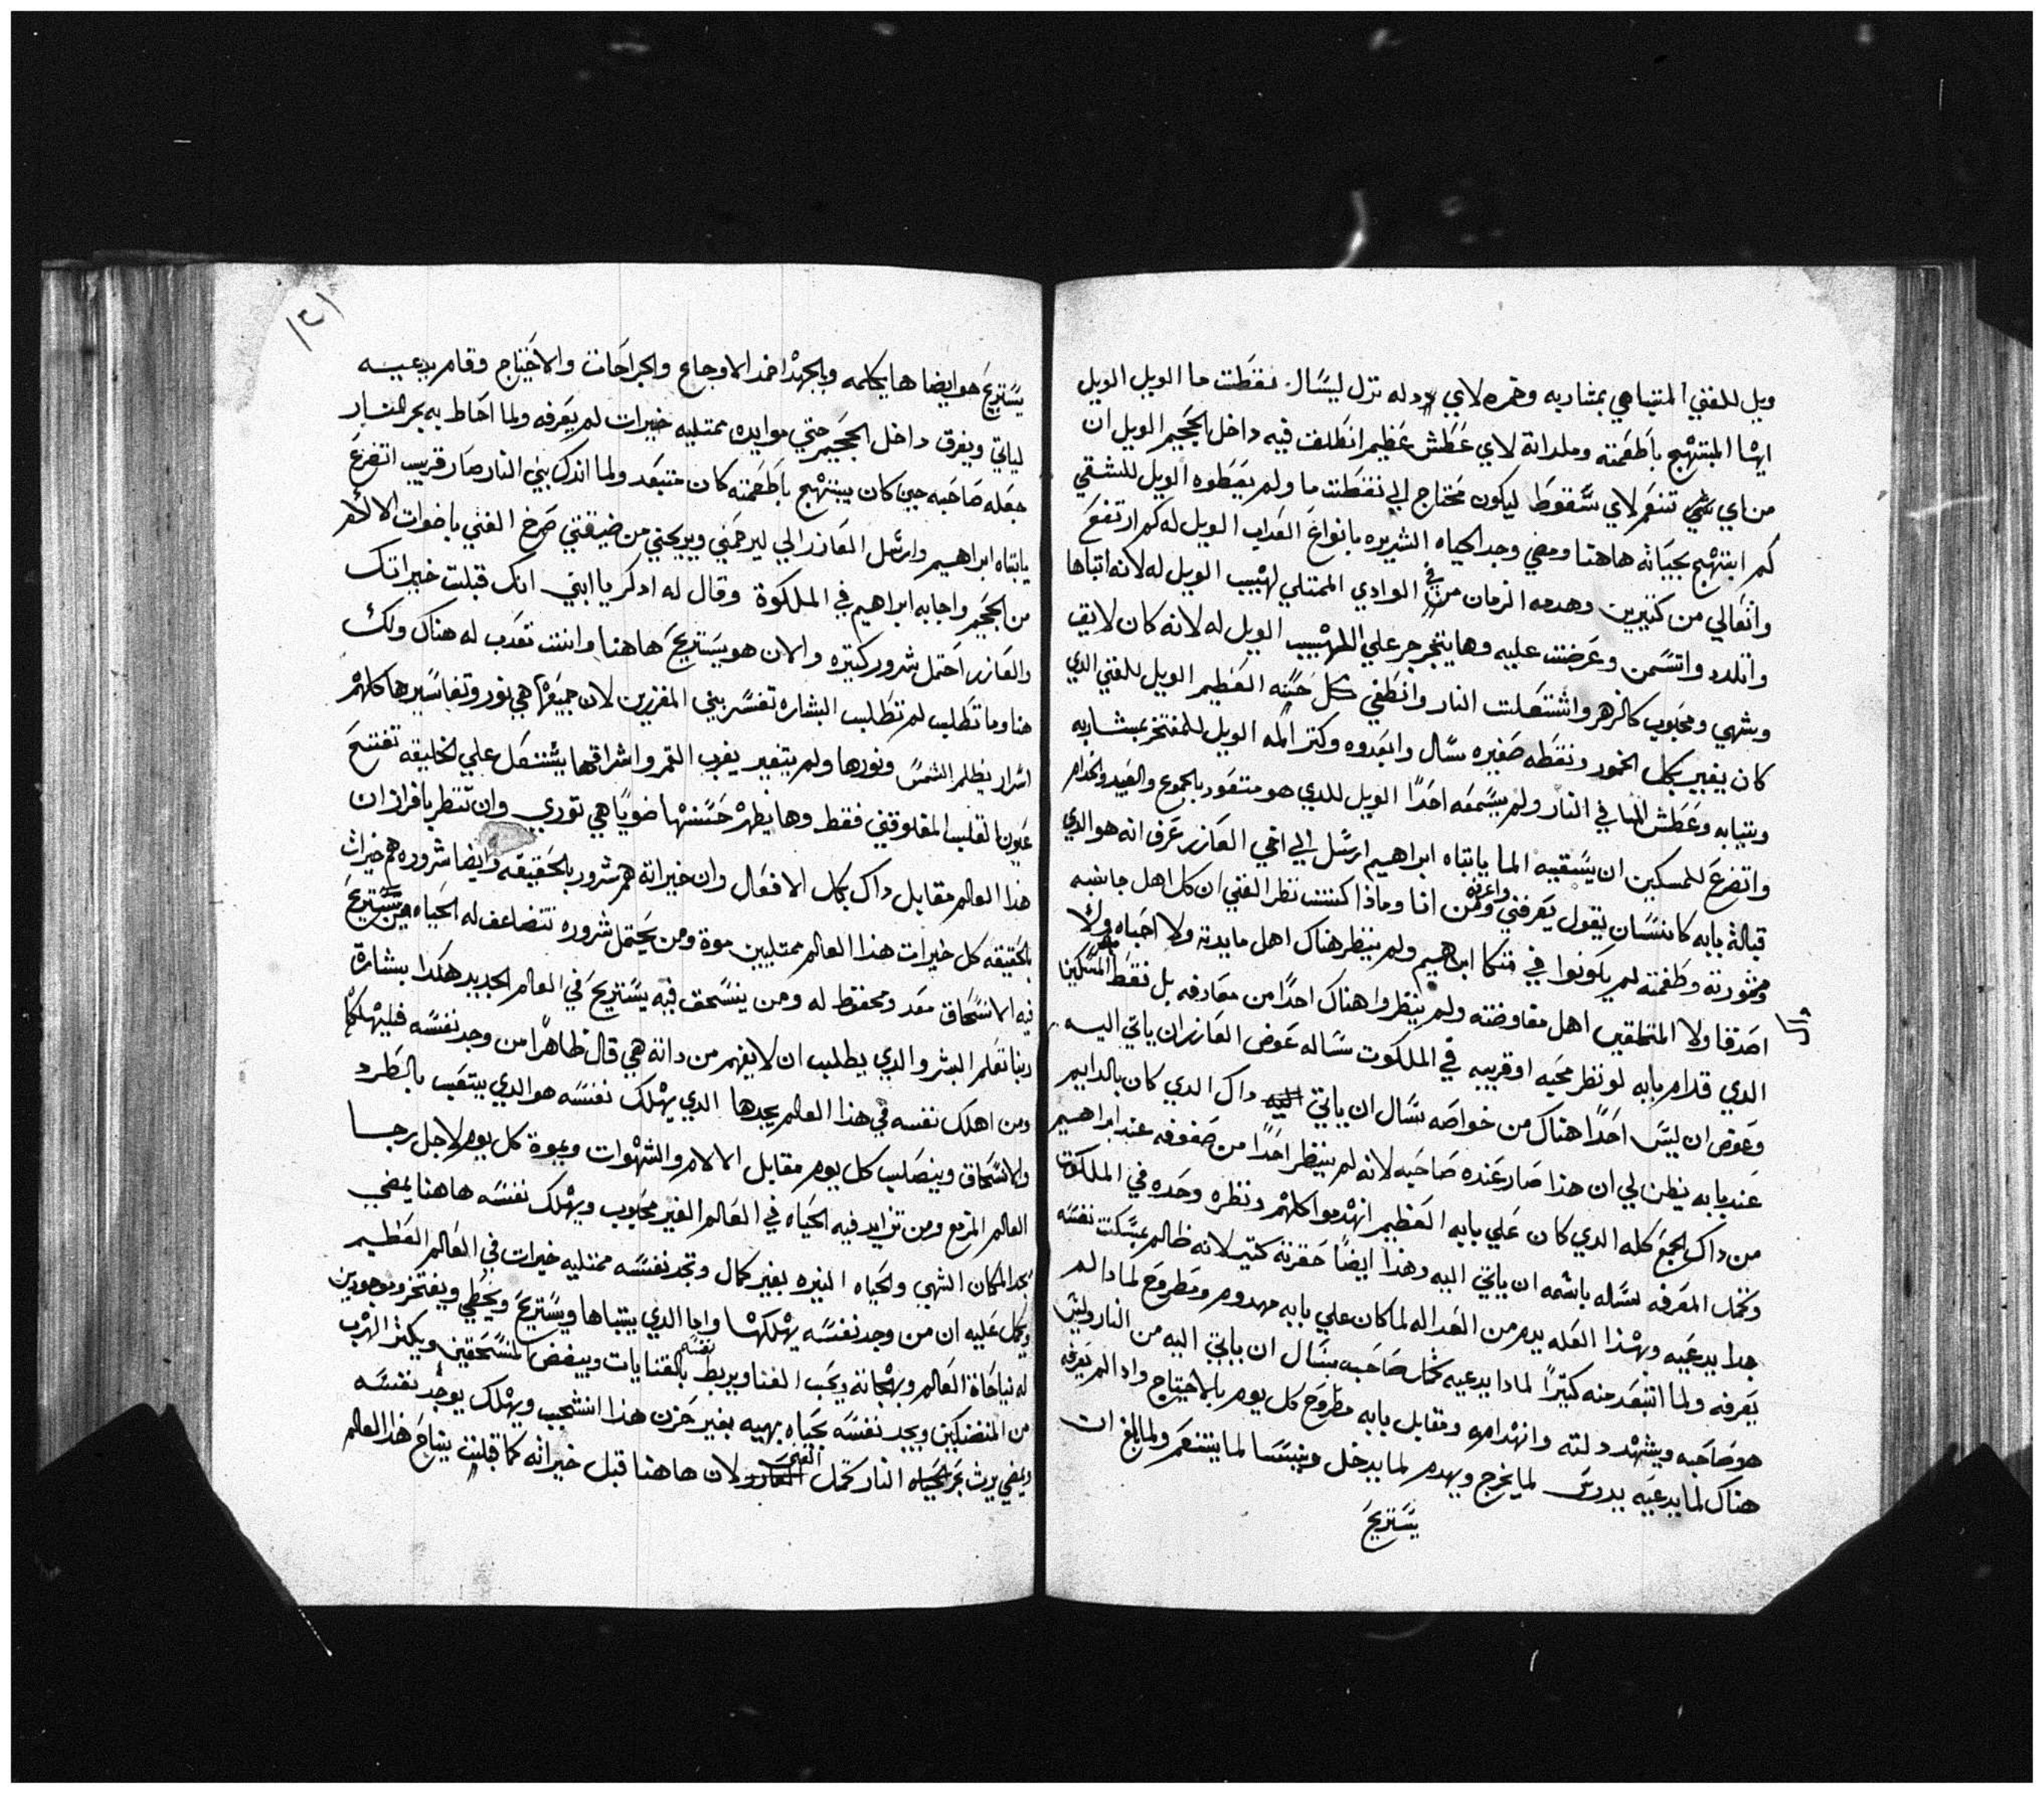 ويل للغني المتباهي بمشاربه وخمره لاي دله نزل ليسال نقطت ما الويل الويل
ايها المبتهج باطعمته وملداته لاي عطش عظيم انطلف فيه داخل الجحيم الويل ان
من اي شي تنعم لاي سقوط ليكون محتاج الي نقطت ما ولم يعطوه الويل للشقي
كم ابتهج بحياته هاهنا ومضي وجد الحياه الشريره بانواع العداب الويل له كم ارتفع
واتعالي من كثيرين وهدمه الزمان من في الوادي الممتلي لهيب الويل له لانه اتباها
واتلدد واتسمن وعرضت عليه وها يتجرجر علي اللهيب الويل له لانه كان لايق
وشهي ومحبوب كالزهر واشتعلت النار وانطفي كل حسنه العظيم الويل للغني الدي
كان يغيير بكل الخمور ونقطه صغيره سال وابعدوه وكتر المه الويل للمفتخر بمشاربه
وبثيابه وعطش للما في النار ولم يسمعه احدا الويل للدي هو متعود بالجموع والعبيد والخدام
واتضرع للمسكين ان يسقيه الما يا ابتاه ابراهيم ارسل الي اخي العازر عرف انه هو الدي
قبالة بابه كانسان يقول يعرفني واعرفه ومن انا وماذا كنت نظر الغني ان كل اهل جانبه
ومشورته وطغمته لم يكونوا في متكا ابراهيم ولم ينظر هناك اهل مايدته ولا احباه ولا
اصدقا ولا المتملقين اهل مفاوضته ولم ينظروا هناك احدا من معارفه بل نقط المسكين
الدي قدام بابه لو نظر محبه او قريبه في الملكوت ساله عوض العازر ان ياتي اليه
وعوض ان ليس احدا هناك من خواصه سال ان ياتي اليه داك الدي كان بالدايم
عند بابه يظن لي ان هذا صار عنده صاحبه لانه لم ينظر احدا من صفوفه عند ابراهيم
من داك الجمع كله الدي كان علي بابه العظيم انهدموا كلهم ونظره وحده في الملكوت
وتمحل المعرفه لساله باسمه ان ياتي اليه وهذا ايضا حقرته كتير لانه ظالم بمسكت نفسه
جدا يدعيه وبهذا العله يدم من العداله لما كان علي بابه مهدوم ومطروح لمادا لم
يعرفه ولما اتبعد منه كتيرا لمادا يدعيه كمثل صاحبه يسال ان ياتي اليه من النار وليس
هو صاحبه ويشهد دلته وانهدامه ومقابل بابه مطروح كل يوم بالاحتياج واد الم يعرفه
هناك لما يدعيه يدوس لما يخرج ويهدم لما يدخل وينسا لما يتنعم ولما بلغ ان
يستريح
يستريح هو ايضا ها يكلمه وبالجهد اخمد الاوجاع والجراحات والاحتياج وقام يدعيه
لياتي ويفرق داخل الجحيم حتي موايده ممتليه خيرات لم يعرفه ولما احاط به بحر النار
جعله صاحبه حين كان يبتهج باطعمته كان متبعد ولما اندك بني النار صار قريب اتضرع
يا ابتاه ابراهيم وارسل العازر الي ليرحمني ويريحني من ضيقتي صرخ الغني باضوات الالام
من الجحيم واجابه ابراهيم في الملكوة وقال له ادكر يا ابني انك قبلت خيراتك
والعازر احتمل شرور كتيره والان هو يستريح هاهنا وانت تعدب له هناك ولك
هنا وما تطلب لم تطلب البشاره تفسر بني المفرزين لان جميعها هي نور وتفاسيرها كلهم
اسرار يظلم الشمس ونورها ولم يتغير يغرب القمر واشراقها يشتعل علي الخليقه تفتح
عيون القلب المغلوقين فقط وها يظهر حسنها ضويا هي توري وان تنظر بافراز ان
هذا العالم مقابل داك بكل الافعال وان خيراته هم شرور بالحقيقه وايضا شروره هم خيرات
بالحقيقه كل خيرات هذا العالم ممتليين موة ومن يحتمل شروره تتضاعف له الحياه من يستريح
فيه الانسحاق معد ومحفوظ له ومن ينسحق فيه يستريح في العالم الجديد هكدا بشارة
ربنا تعلم البشر والدي يطلب ان لا يفهم من داته هي قال ظاهرا من وجد نفسه فليهلكها
ومن اهلك نفسه في هذا العالم يجدها الدي يهلك نفسه هو الدي يتعب بالطرد
والانسحاق وينصلب كل يوم مقابل الالام والشهوات ويموة كل يوم لاجل رجا
العالم المزمع ومن تزايد فيه الحياه في العالم الغير محبوب ويهلك نفسه هاهنا يمضي
يجد المكان الشهي والحياه النيره بغير كمال وتجد نفسه ممتليه خيرات في العالم العظيم
ويكمل عليه ان من وجد نفسه يهلكها واما الدي يتباها ويستريح ويخطي ويفتخر وموجودين
له نياحاة العالم وبهجاته ويحب الغنا ويربط نفسه بالقنايات ويبغض المنسحقين ويكتر الهرب
من المتضيكين ويجد نفسه بحياه بهيه بغير حزن هذا انشجب ويهلك يوجد نفسه
ويمضي يرث بحر الحياه النار كمثل العازر الغني لان هاهنا قبل خيراته كما قبلت نياح هذا العالم